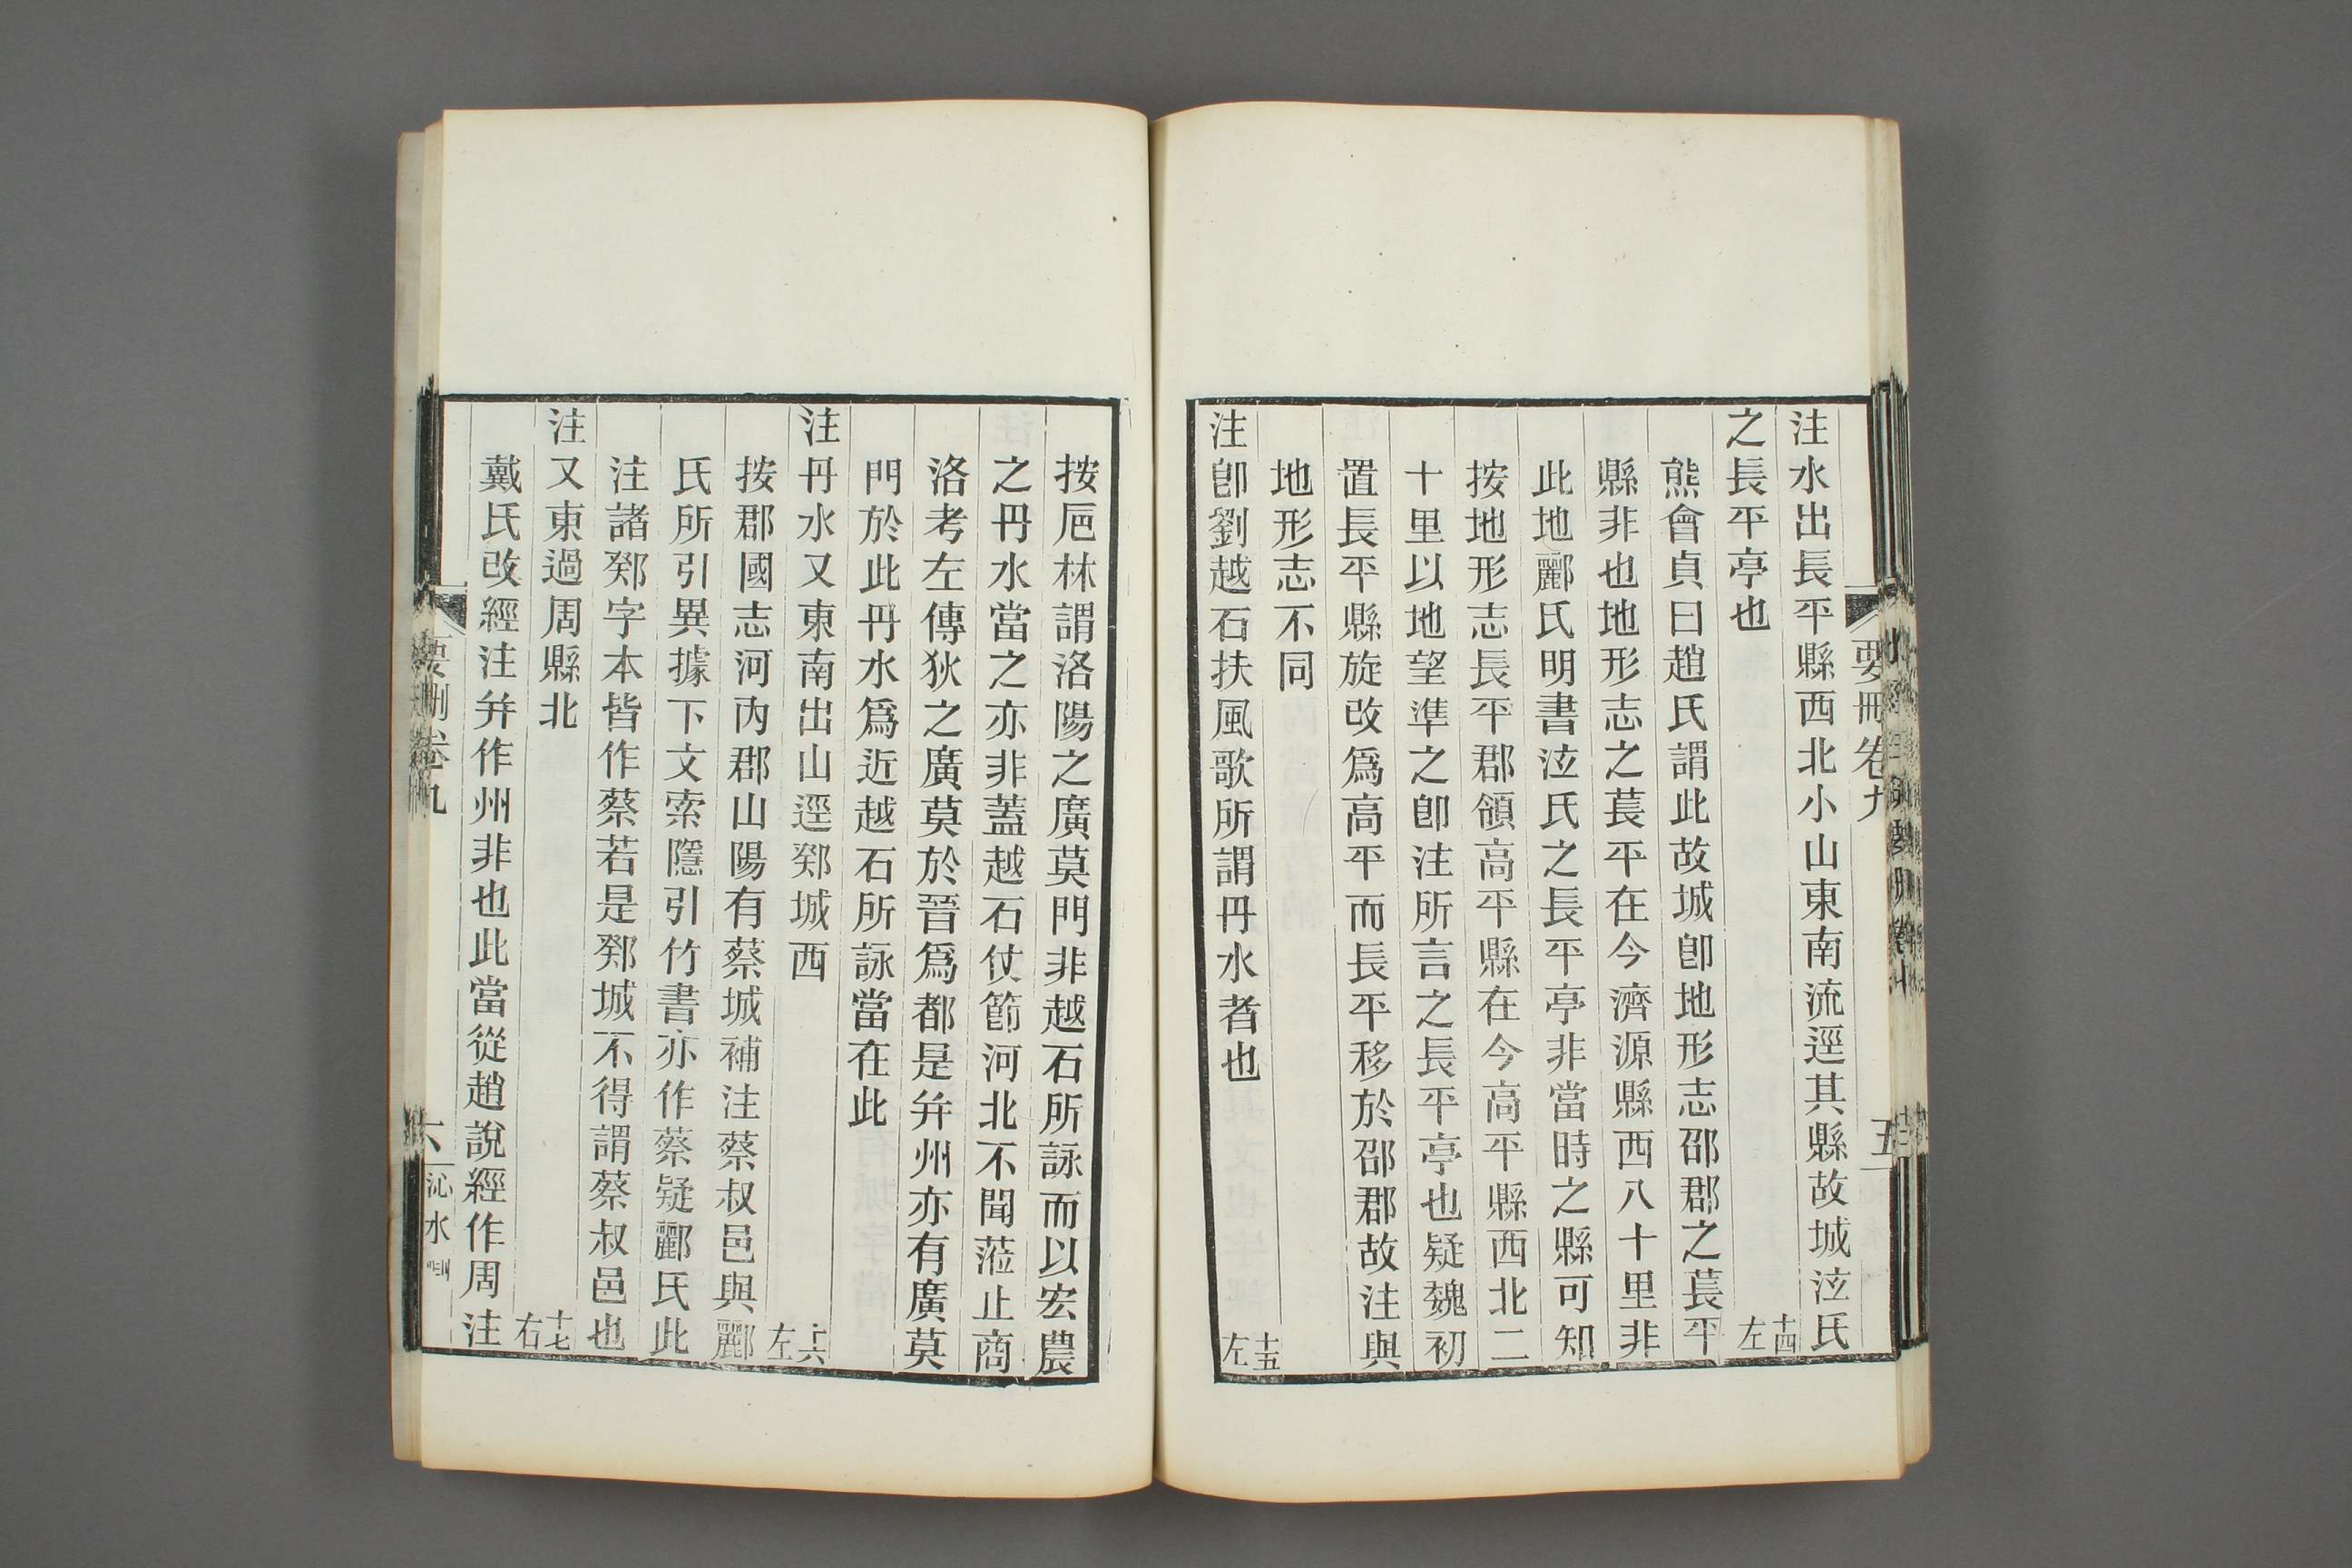 要刪卷九
五
注水出長平縣西北小山東南流逕其縣故城泫氏
之長平亭也十四左
熊會貞曰趙氏謂此故城卽地形志邵郡之萇平
縣非也地形志之萇平在今濟源縣西八十里非
此地酈氏明書泫氏之長平亭非當時之縣可知
按地形志長平郡領高平縣在今高平縣西北二
十里以地望準之卽注所言之長平亭也疑魏初
置長平縣旋改爲高平而長平移於邵郡故注與
地形志不同
注卽劉越石扶風歌所謂丹水者也十五左
按巵林謂洛陽之廣莫門非越石所詠而以宏農
之丹水當之亦非蓋越石仗節河北不聞蒞止商
洛考左傳狄之廣莫於晉爲都是幷州亦有廣莫
門於此丹水爲近越石所詠當在此
注丹水又東南出山逕鄈城西十六左
按郡國志河內郡山陽有蔡城補注蔡叔邑與酈
氏所引異據下文索隱引竹書亦作蔡疑酈氏此
注諸鄈字本皆作蔡若是鄈城不得謂蔡叔邑也
注又東過周縣北十七右
戴氏改經注幷作州非也此當從趙說經作周注
要刪卷九
六
沁水